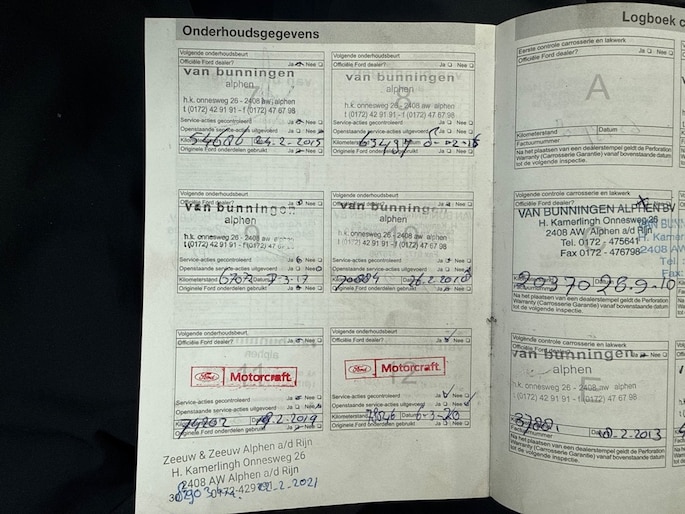 Onderhoudsgegevens
Volgende onderhoudsbeurt
Officiële Ford dealer? Ja Nee
van bunningen
alphen
h.k. onnesweg 26 - 2408 aw alphen
t (0172) 42 91 91 - f (0172) 47 67 98
Service-acties gecontroleerd Ja Nee
Openstaande service-acties uitgevoerd Ja Nee
54686 24-2-2015
Originele Ford onderdelen gebruikt Ja Nee
Volgende onderhoudsbeurt
Officiële Ford dealer? Ja Nee
van bunningen
8
alphen
h.k. onnesweg 26 - 2408 aw alphen
t (0172) 42 91 91 - f (0172) 47 67 98
Service-acties gecontroleerd Ja Nee
Openstaande service-acties uitgevoerd Ja Nee
Originele Ford onderdelen gebruikt Ja Nee
Volgende onderhoudsbeurt
Officiële Ford dealer? Ja Nee
van bunningen
alphen
9
h.k. onnesweg 26 - 2408 aw alphen
t (0172) 42 91 91 - f (0172) 47 67 98
Service-acties gecontroleerd Ja Nee
Openstaande service-acties uitgevoerd Ja Nee
Originele Ford onderdelen gebruikt Ja Nee
Volgende onderhoudsbeurt
Officiële Ford dealer? Ja Nee
van bunningen
alphen
10
h.k. onnesweg 26 - 2408 aw alphen
t (0172) 42 91 91 - f (0172) 47 67 98
Service-acties gecontroleerd Ja Nee
Openstaande service-acties uitgevoerd Ja Nee
Originele Ford onderdelen gebruikt Ja Nee
Volgende onderhoudsbeurt
Officiële Ford dealer? Ja Nee
11
Ford Motorcraft
Service-acties gecontroleerd Ja Nee
Openstaande service-acties uitgevoerd Ja Nee
74202
Originele Ford onderdelen gebruikt Ja Nee
Volgende onderhoudsbeurt
Officiële Ford dealer? Ja Nee
12
Ford Motorcraft
Service-acties gecontroleerd Ja Nee
Openstaande service-acties uitgevoerd Ja Nee
Kilometerstand Datum 6-3-20
Originele Ford onderdelen gebruikt Ja Nee
Zeeuw & Zeeuw Alphen a/d Rijn
H. Kamerlingh Onnesweg 26
2408 AW Alphen a/d Rijn
Logboek c
Eerste controle carrosserie en lakwerk
Officiële Ford dealer? Ja Nee
A
Kilometerstand Datum
Factuurnummer
Na het plaatsen van een dealerstempel geldt de Perforation
Warranty (Carrosserie Garantie) vanaf bovenstaande datum
tot de volgende inspectie.
Volgende controle carrosserie en lakwerk
Officiële Ford dealer? Ja Nee
VAN BUNNINGEN ALPHEN BV
H. Kamerlingh Onnesweg 26
2408 AW Alphen a/d Rijn
Tel. 0172 - 475641
Fax 0172 - 476798
20370 28-9-10
Na het plaatsen van een dealerstempel geldt de Perforation
Warranty (Carrosserie Garantie) vanaf bovenstaande datum
tot de volgende inspectie.
Volgende controle carrosserie en lakwerk
Officiële Ford dealer? Ja Nee
van bunningen
alphen
E
h.k. onnesweg 26 - 2408 aw alphen
t (0172) 42 91 91 - f (0172) 47 67 98
Factuurnummer
Na het plaatsen van een dealerstempel geldt de Perforation
Warranty (Carrosserie Garantie) vanaf bovenstaande datum
tot de volgende inspectie.